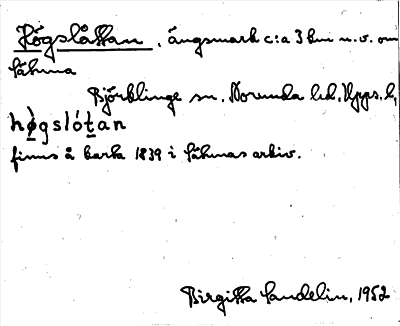 Högslåttan, ängsmark c:a 3 km n.v. om
Låhma
Björklinge sn. Norunda hd, Upps. l,
hø̀gslót̠an
finns å karta 1839 i Låhmas arkiv.
Birgitta Sundelin, 1952